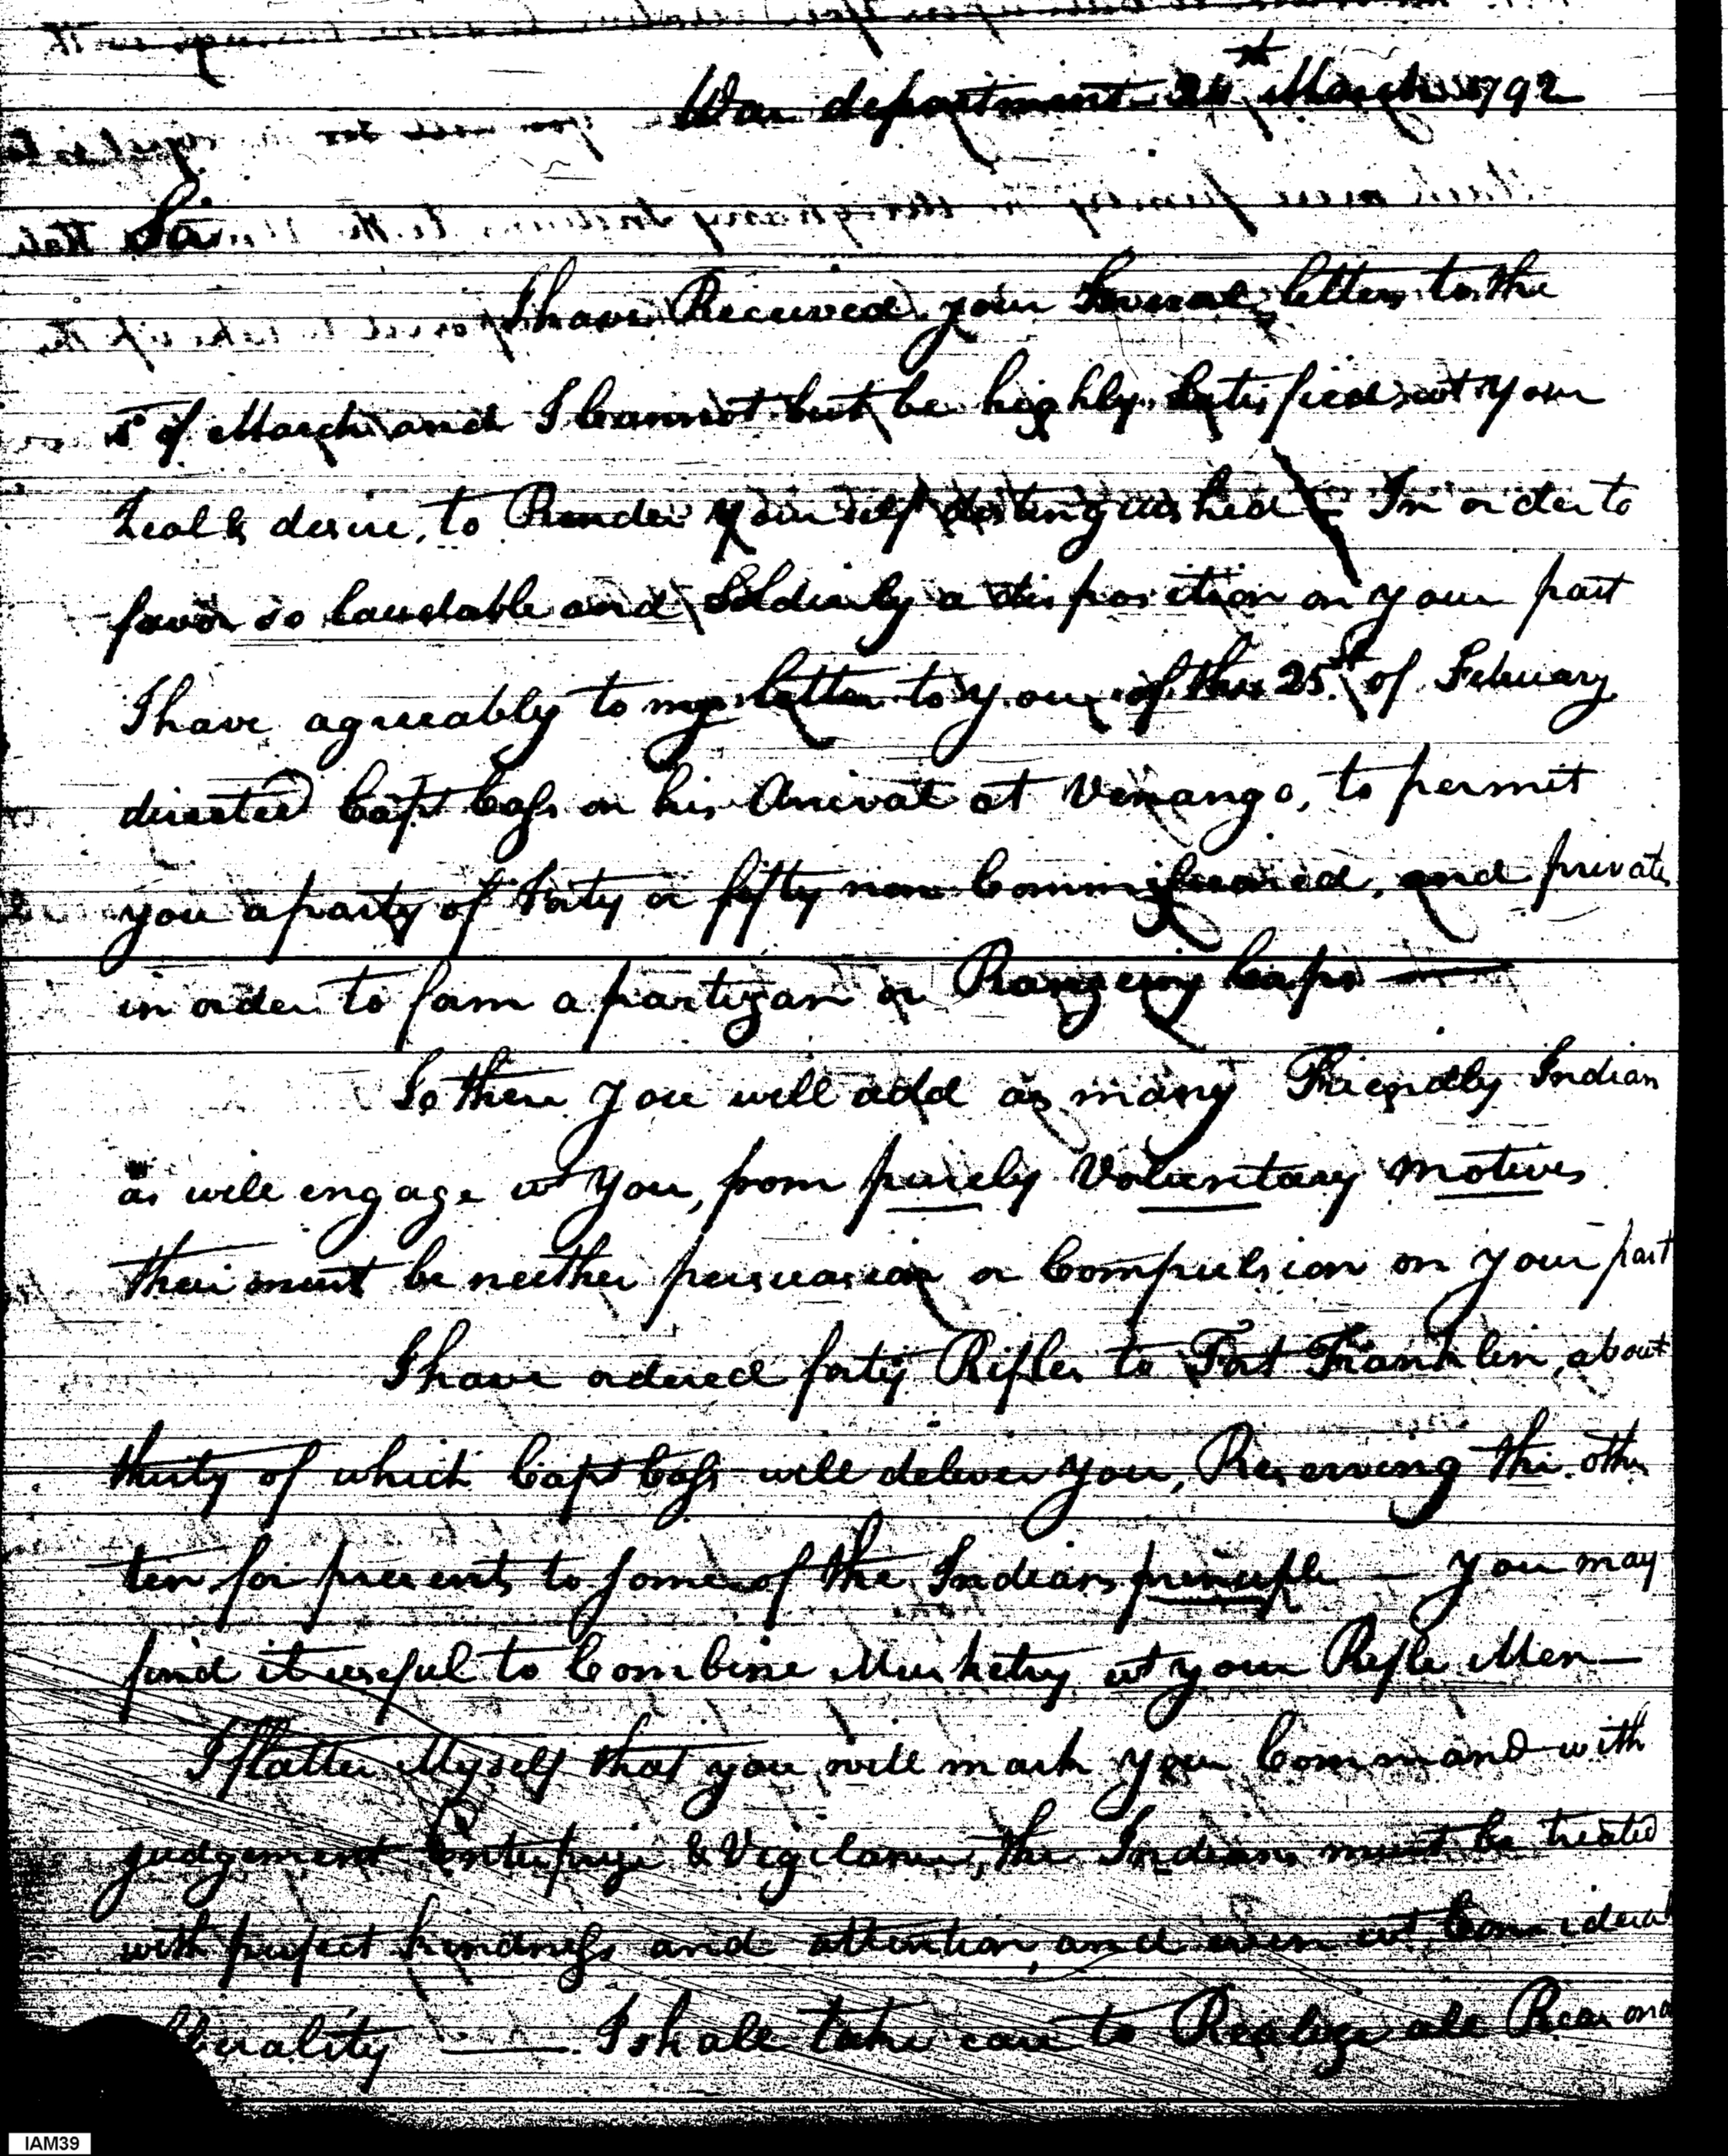 War department 24th March 1792
Sir
I have Received your Several letters to the
5 of March and I Cannot but be highly Satisfied wt your
Zeal & desire, to Render your self distinguished — In order to
favor so laudable and Soldierly a disposition on your part
I have agreeably to my letter to you of the 25th of Febuary
directed Capt Cass on his Arrival at Venango, to permit
you a party of Forty or fifty non Commissioned, and privates
in order to form a partizan or Rangeing Corps —
To these you will add as many Friendly Indians
as will engage wt You, from purely Voluntary motives
their must be neither persuasion or Compulsion on your part
I have ordered forty Rifles to Fort Franklin, about
thirty of which Capt Cass will deliver you, Reserving the other
ten for presents to some of the Indians principle — You may
find it useful to Combine Musketry wt your Rifle Men —
I flatter Myself that you will mark your Command with
judgement Enterprize & Vigilance, the Indians must be treated
with perfect kindness and attention, and even wt Considerable
liberality — I shall take care to Realize all Reasona
IAM39